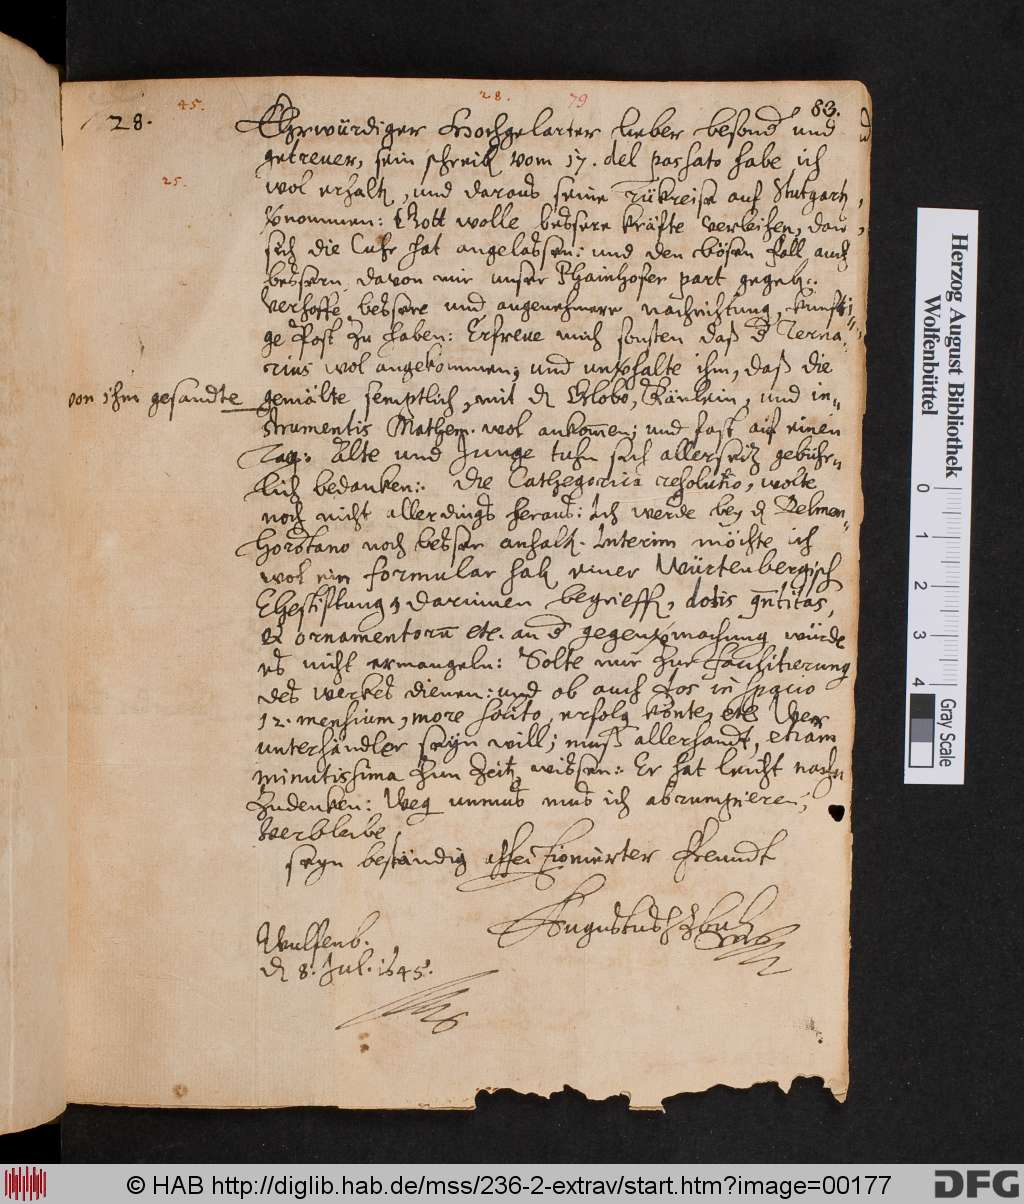 45.
28.
79
83.
28.
Ehrwürdiger Hochgelarter lieber besond und
getreuer, sein schreib vom 17. del passato habe ich
wol erhalt, und daraus seine rükreise auf Stutgart,
vernommen: Gott wolle bessere kräfte verleihen, dan
sich die Cuhr hat angelassen: und den bösen fall auch
bessern davon mir unser Phainhofer part gegeb:.
Verhoffe bessere und angenehmere nachrichtung, künfti
ge Post zu haben: Erfreue mich sonsten daß d Terna-
25.
rius wol angekommen, und unverhalte ihm, daß die
von ihm gesandte gemälte semptlich, mit d Globo, und in-
strumentis Mathem. wol ankomen; und fast auf einen
Tag: Alte und Junge tuhn sich allerseitz gebühr-
lich bedanken:. Die Cathegorica resolutio, wolte
noch nicht allerdings heraus: Ich werde bey d Delmen-
horstano noch besser anhalt. Interim möchte ich
wol ein formular hab einer Würtenbergisch
Ehestiftung, darinnen begrieff, dotis qntitas,
et ornamentoru etc. an d gegenvermachung würde
es nicht ermangeln: Solte mir zur facilitierung
des werkes dienen: und ob auch dos in spacio
12. mensium, more solito, erfolg konte, etc Wer
unterhändler seyn will; muß allerhandt, etiam
minutissima zum zeit, wissen: Er hat leicht nach
zudenken: Weg unmus mus ich abrumpieren;
Verbleibe,
seyn beständig affectionierter freundt
Augustus HzBuL
Wulfenb.
d 8. Jul. 1645.
Herzog August Bibliothek
Wolfenbüttel
0 1 2 3 4
Gray Scale
© HAB http://diglib.hab.de/mss/236-2-extrav/start.htm?image=00177
DFG